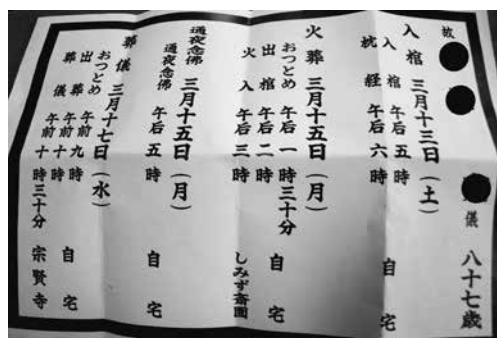 故 儀 八十七歳
入棺 三月十三日(土)
入棺 午后五時 自宅
枕経 午后六時
火葬 三月十五日(月)
おつとめ 午后一時三十分 自宅
出棺 午后二時
火入 午后三時 しみず斎園
通夜念佛 三月十五日(月)
通夜念佛 午后五時 自宅
葬儀 三月十七日(水)
おつとめ 午前九時 自宅
出葬 午前十時
葬儀 午前十時三十分 宗賢寺